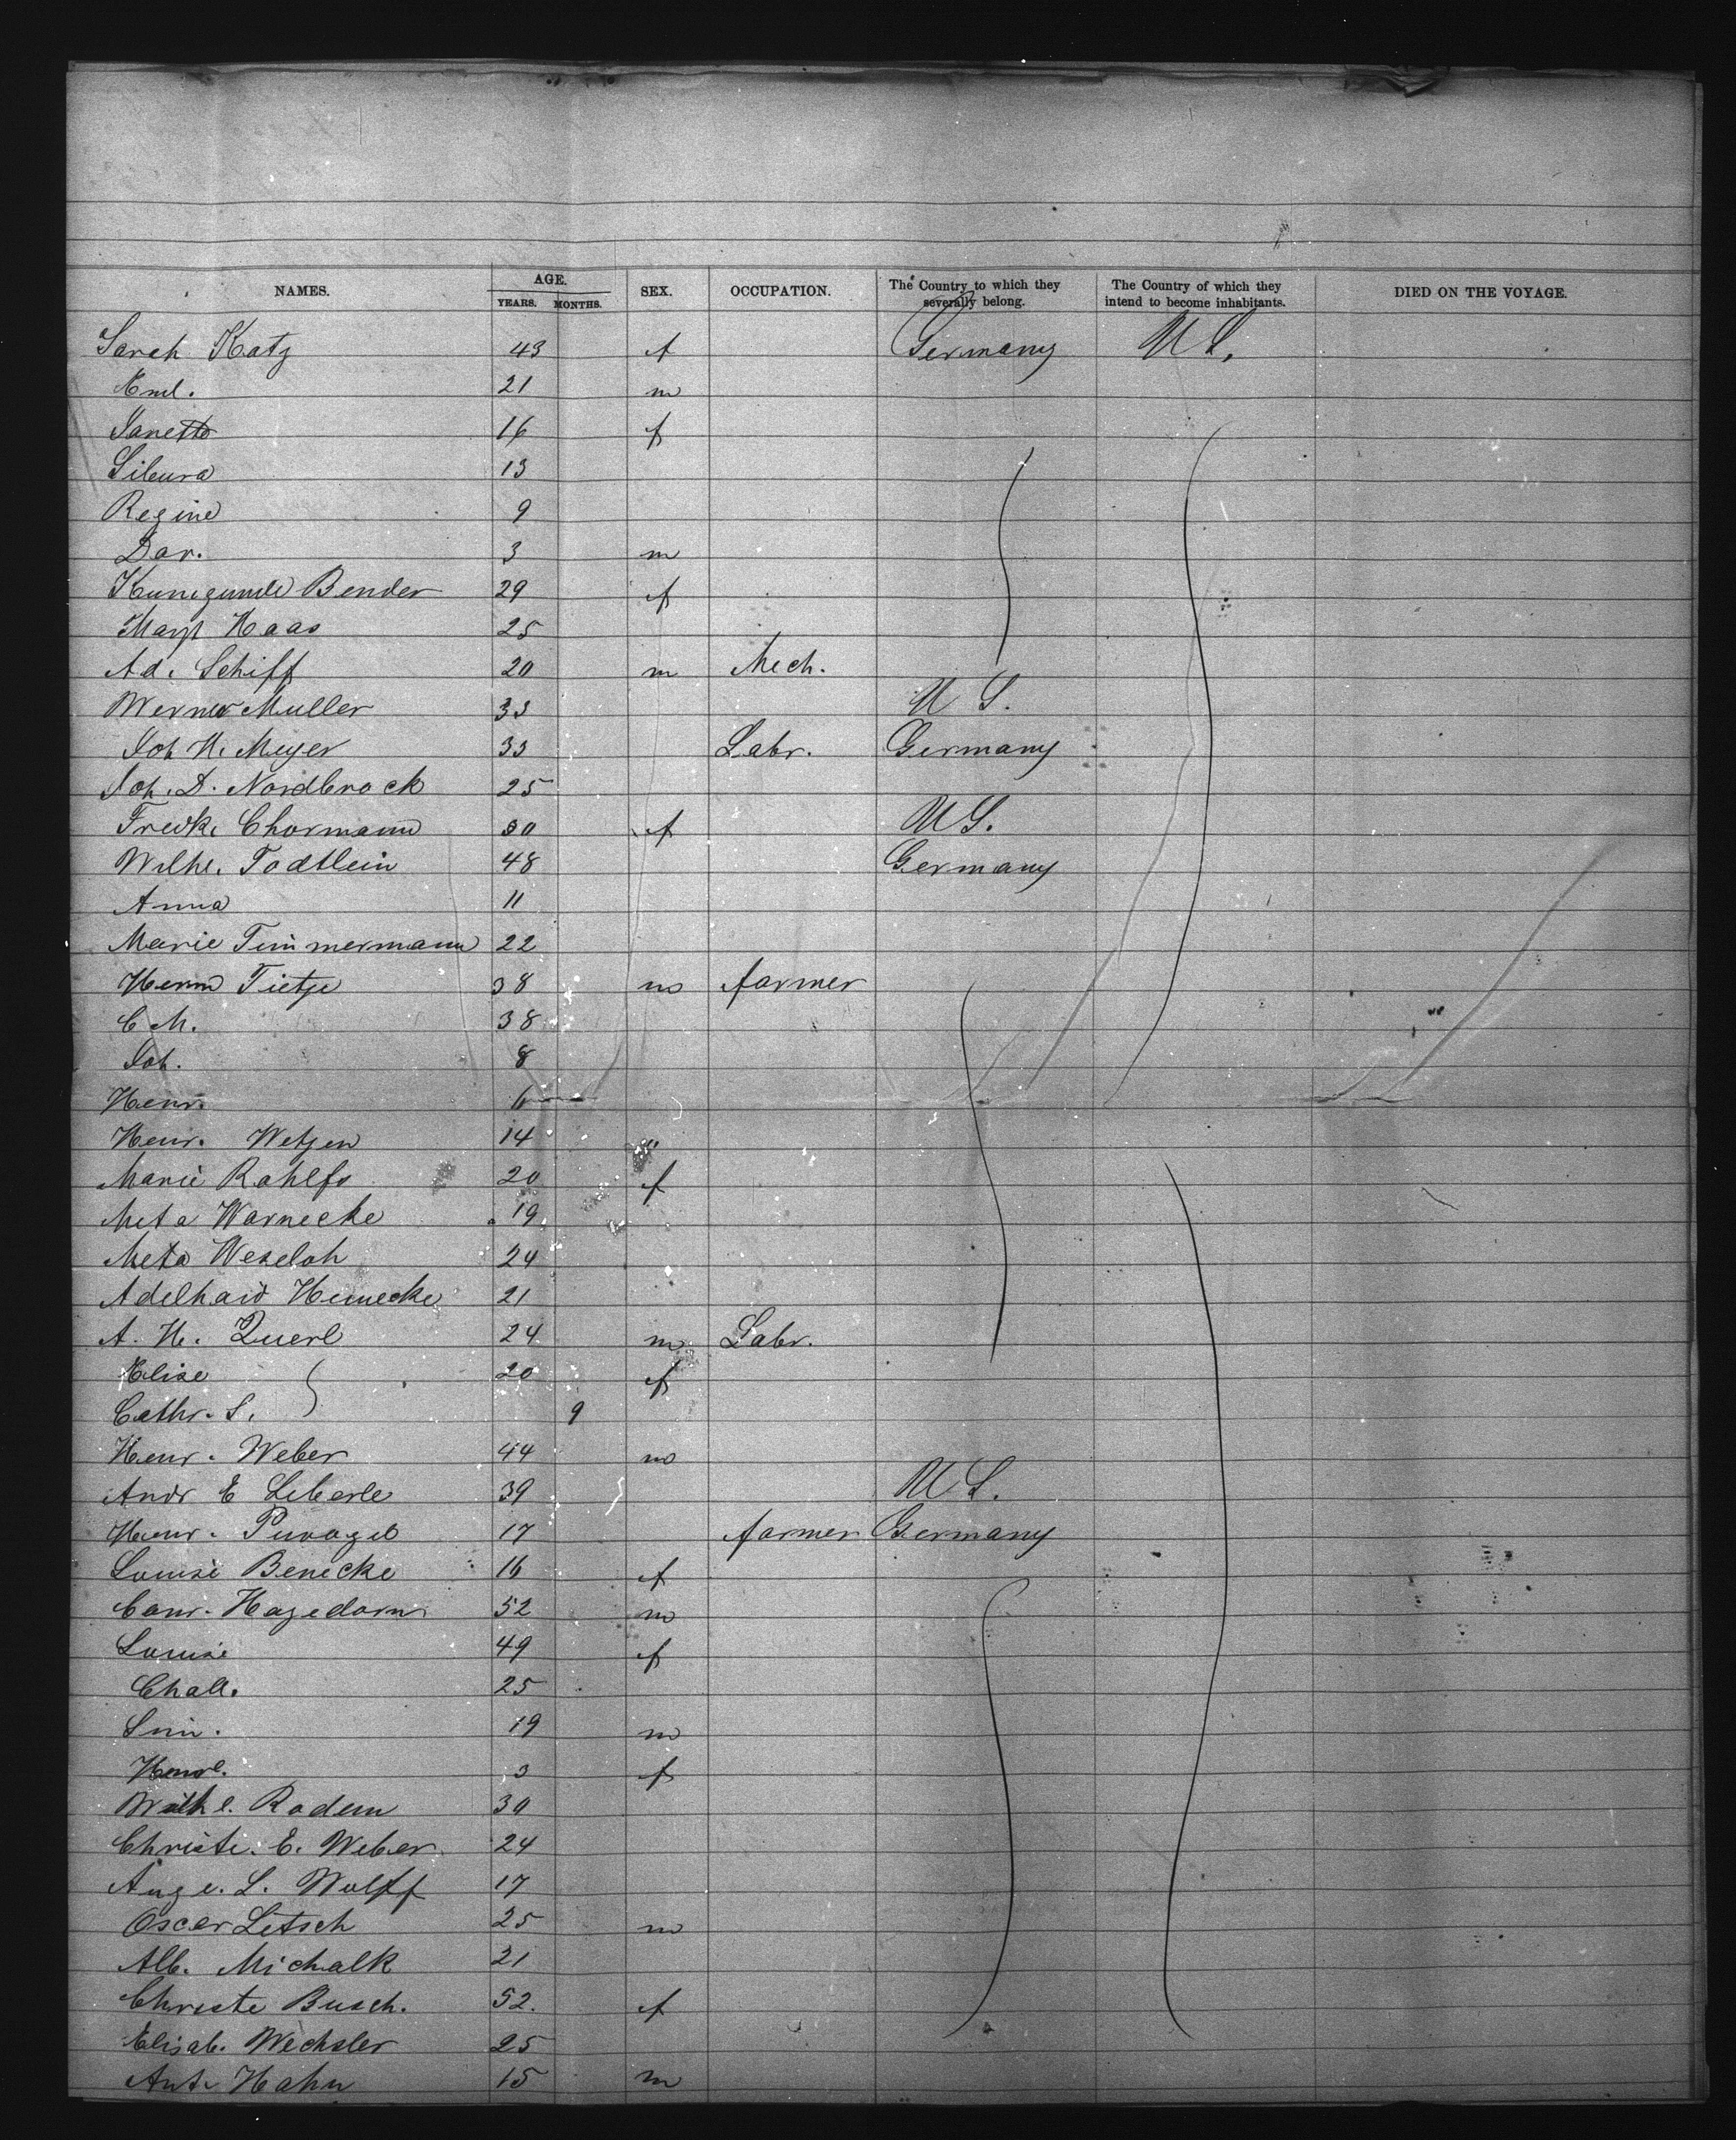 NAMES. AGE. YEARS. MONTHS. SEX. OCCUPATION. The Country to which they severally belong. The Country of which they intend to become inhabitants. DIED ON THE VOYAGE.
Sarah Katz 43 f Germany U S.
Eml. 21 m
Janette 16 f
Libura 13
Regine 9
Dar. 3 m
Kunigunde Bender 29 f
Margt Haas 25
Ad. Schiff 20 m Mech.
Werner Muller 33 U S.
Joh H. Meyer 33 Labr. Germany
Joh. D. Nordbrock 25
Fredke Chormann 30 f U S.
Wilhe. Todtlein 48 Germany
Anna 11
Marie Timmermann 22
Herm Tietje 38 m farmer
C M. 38
Joh. 8
Henr. 6
Henr. Wetjen 14 "
Marie Rahlfs 20 f
Meta Warnecke 19
Meta Weseloh 24
Adelhaid Heinecke 21
A. H. Querl 24 m Labr.
Elise 20 f
Cathr. S. 9
Henr. Weber 44 m
Andr E Leberle 39 U S.
Henr. Puvogel 17 farmer Germany
Louise Benecke 16 f
Conr. Hagedorn 52 m
Louise 49 f
Chall. 25
19 m
Henre. 3 f
Wilhe. Radem 30
Christe. E. Weber 24
Auge. L. Wolff 17
Oscar Letsch 25 m
Alb. Michalk 21
Christe Busch. 52. f
Elisab. Wechsler 25
Ant. Hahn 15 m